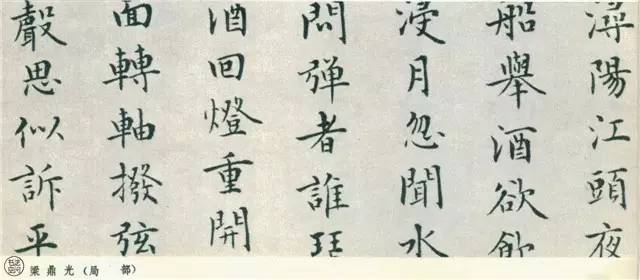 潯陽江頭夜
船舉酒欲飲
浸月忽聞水
問彈者誰琵
酒回燈重開
面轉軸撥弦
聲思似訴平
梁鼎光（局 部）